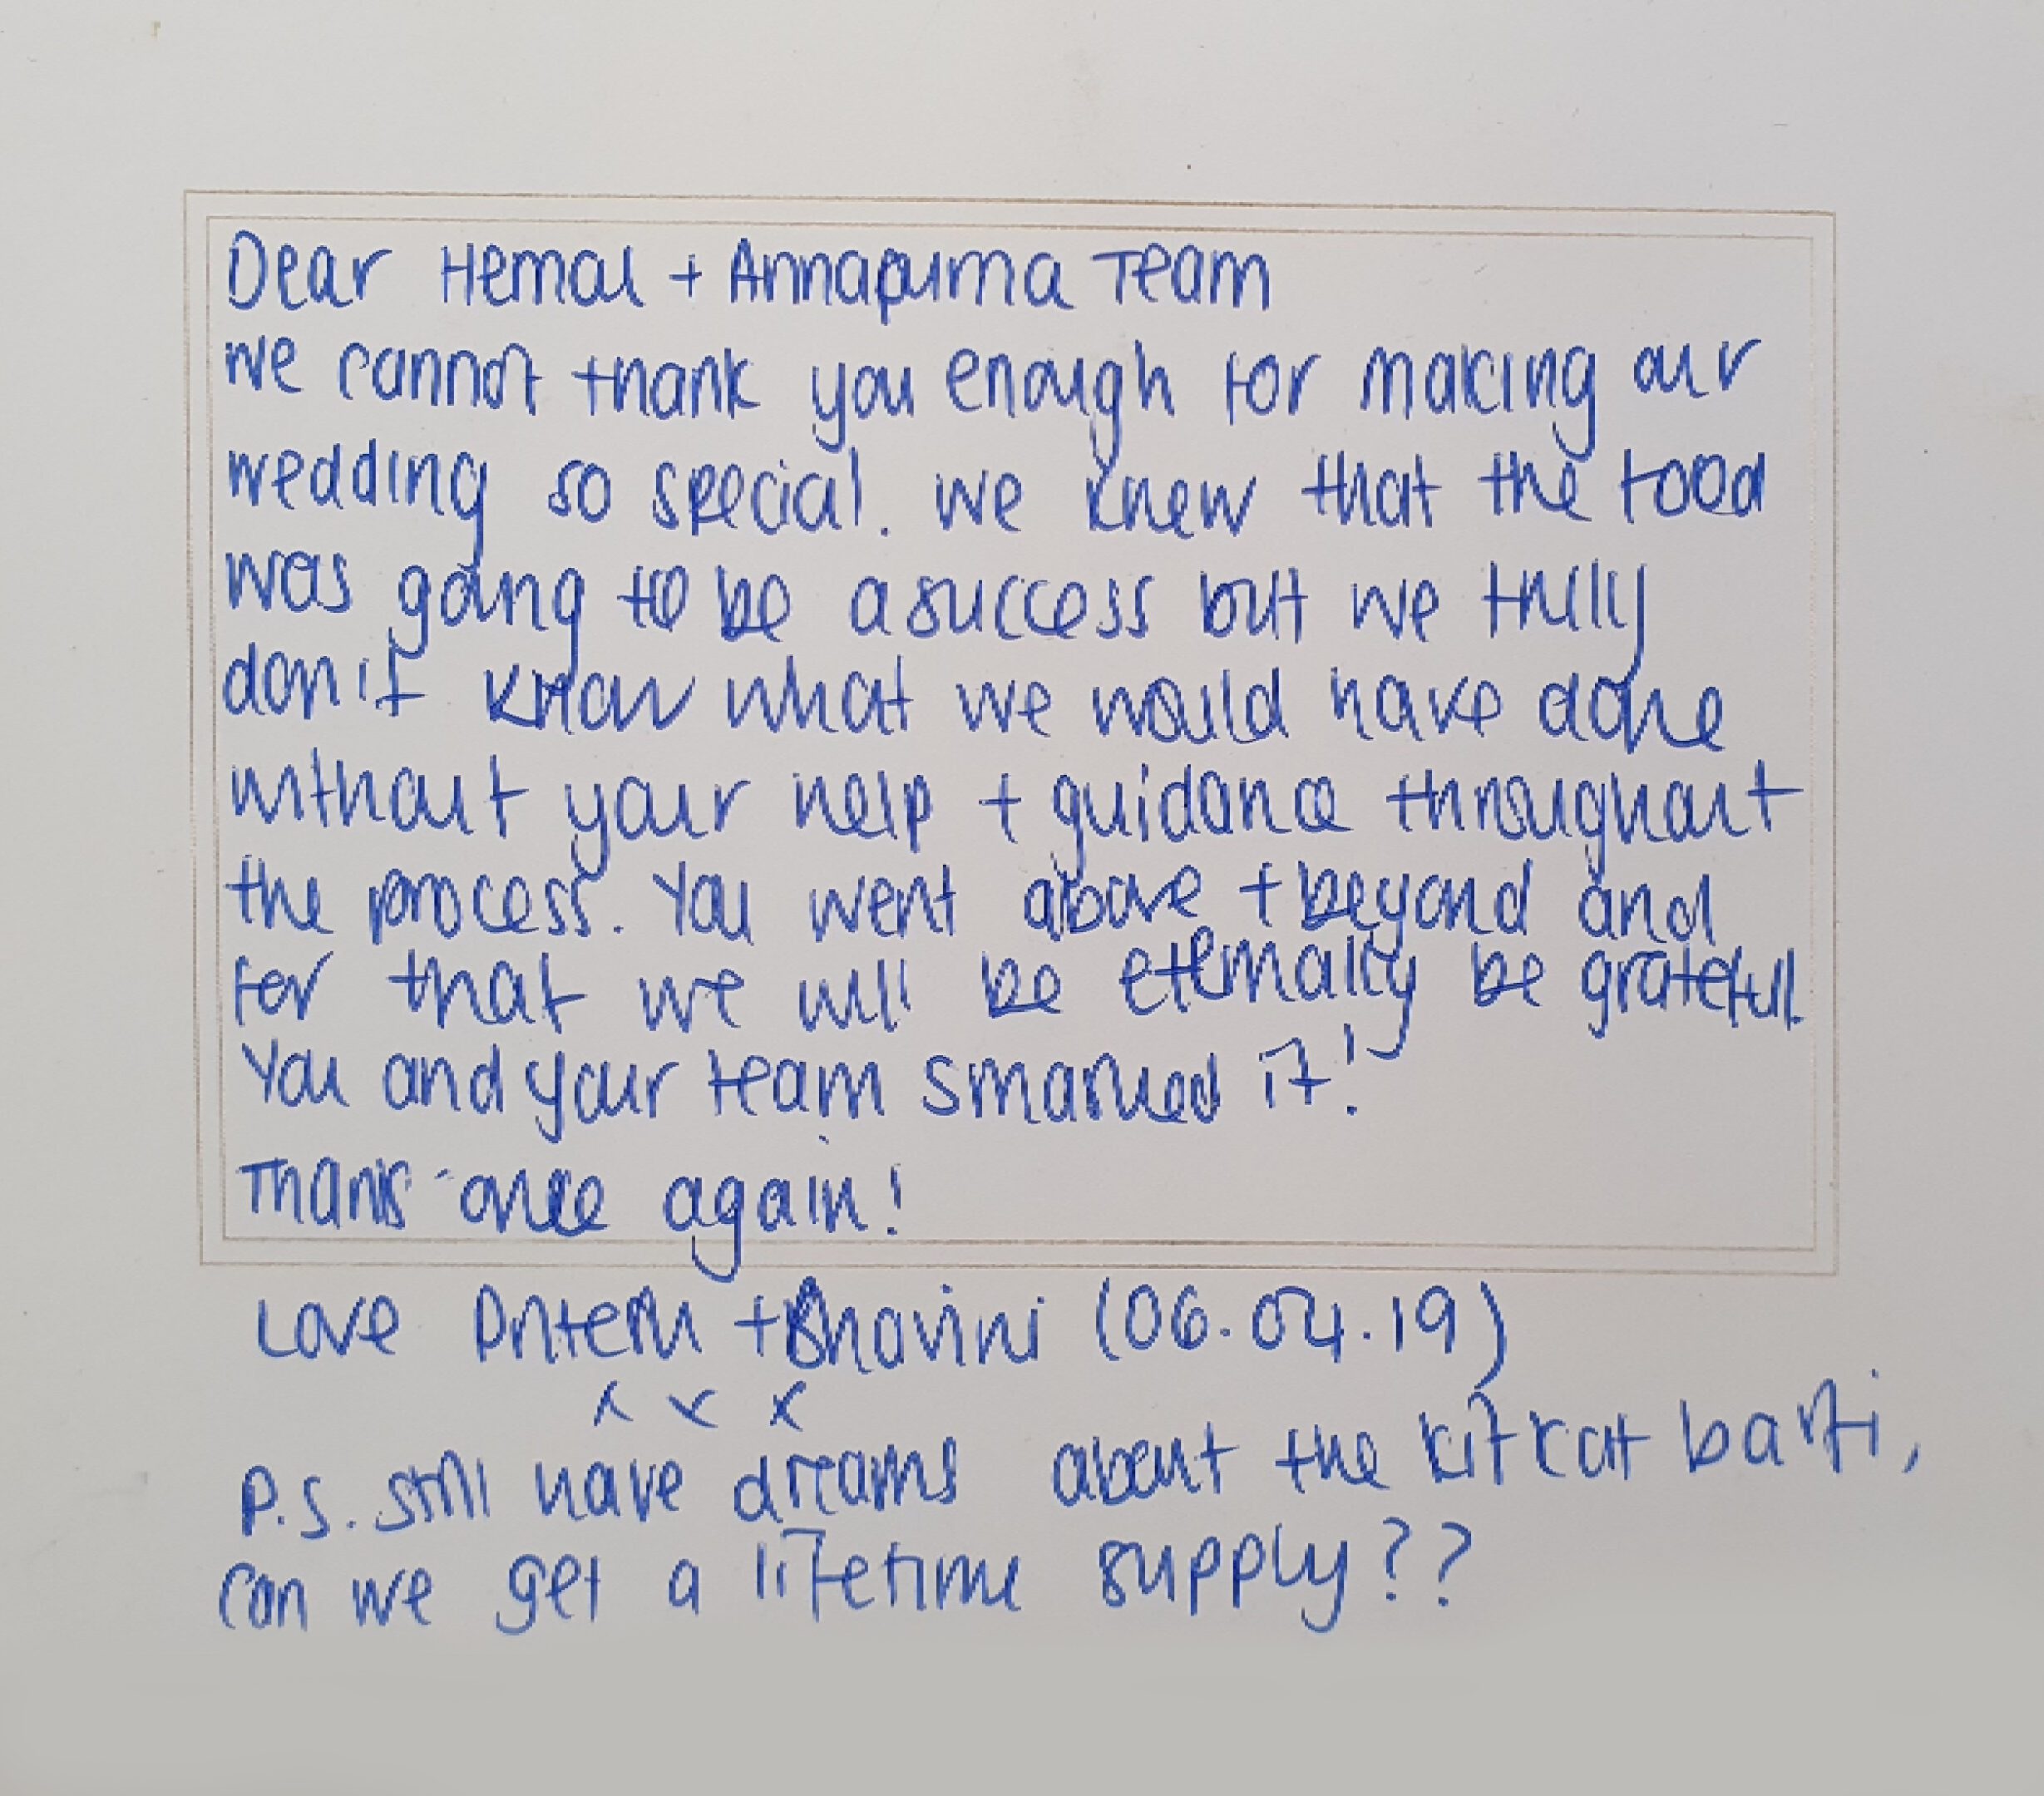 Dear Hemal + Annapurna Team
we cannot thank you enough for making our
wedding so special. we knew that the food
was going to be a success but we trully
don't know what we would have done
without your help + guidance throughout
the process. You went above + beyond and
for that we will be eternally be grateful.
You and your team smashed it!
Thanks once again!
Love Pritesh + Bhavini (06.04.19)
x x x
P.S. still have dreams about the kitkat barfi,
can we get a lifetime supply??